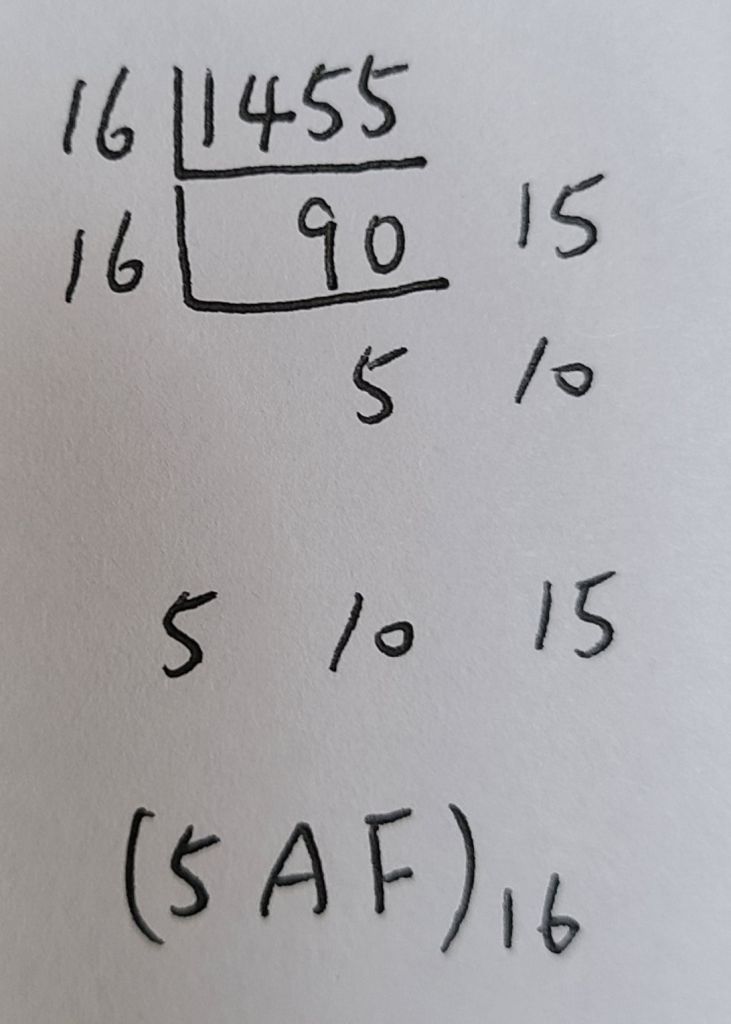 16 1455
16 90 15
5 10
5 10 15
(5AF)16